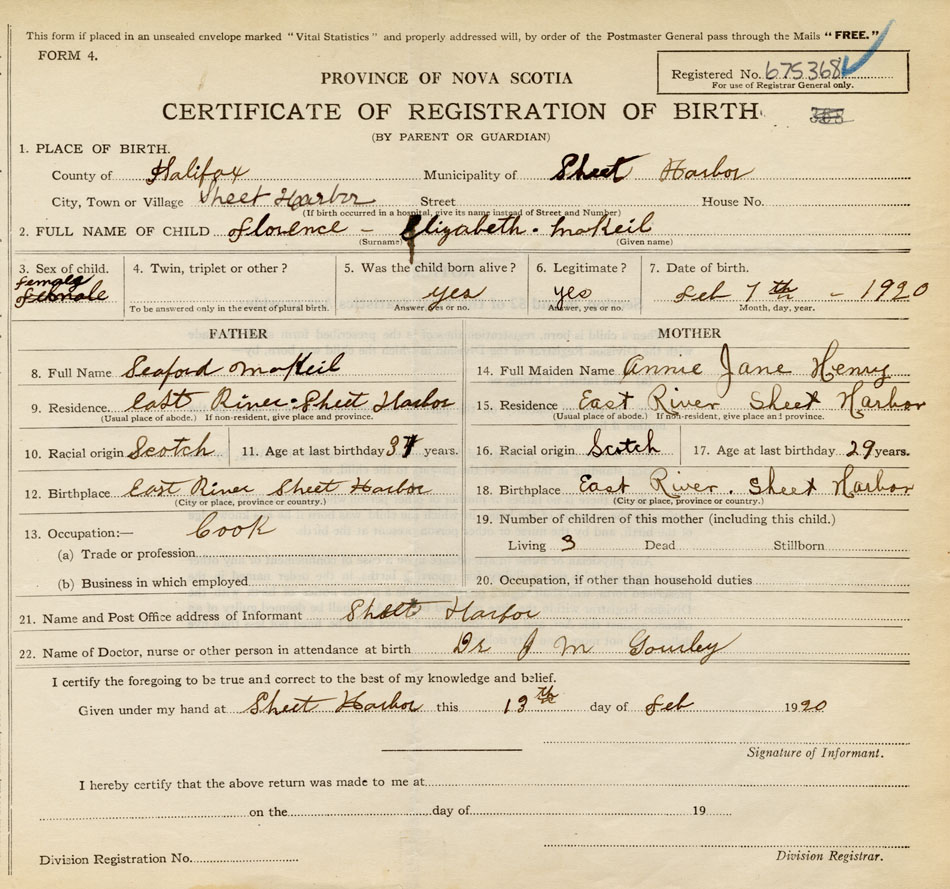 This form if placed in an unsealed envelope marked "Vital Statistics" and properly addressed will, by order of the Postmaster General pass through the Mails "FREE."
FORM 4.
Registered No. 675368
For use of Registrar General only.
PROVINCE OF NOVA SCOTIA
CERTIFICATE OF REGISTRATION OF BIRTH
(BY PARENT OR GUARDIAN)
1. PLACE OF BIRTH.
County of Halifax Municipality of Sheet Harbor
City, Town or Village Sheet Harbor Street House No.
(If birth occurred in a hospital, give its name instead of Street and Number)
2. FULL NAME OF CHILD Florence - Elizabeth. McKeil
(Surname) (Given name)
3. Sex of child. 4. Twin, triplet or other? 5. Was the child born alive? 6. Legitimate? 7. Date of birth.
female
female yes yes Feb 7th - 1920
To be answered only in the event of plural birth. Answer, yes or no. Answer, yes or no. Month, day, year.
FATHER MOTHER
8. Full Name Seaford McKeil 14. Full Maiden Name Annie Jane Henry
9. Residence. East River Sheet Harbor 15. Residence East River Sheet Harbor
(Usual place of abode.) If non-resident, give place and province. (Usual place of abode.) If non-resident, give place and province.
10. Racial origin Scotch 11. Age at last birthday years. 16. Racial origin Scotch 17. Age at last birthday 29 years.
12. Birthplace East River Sheet Harbor 18. Birthplace East River. Sheet Harbor
(City or place, province or country.) (City or place, province or country.)
13. Occupation:— Cook 19. Number of children of this mother (including this child.)
(a) Trade or profession Living 3 Dead Stillborn
(b) Business in which employed 20. Occupation, if other than household duties
21. Name and Post Office address of Informant Sheet Harbor
22. Name of Doctor, nurse or other person in attendance at birth Dr J M Gourley
I certify the foregoing to be true and correct to the best of my knowledge and belief.
Given under my hand at Sheet Harbor this 13th day of Feb 1920
Signature of Informant.
I hereby certify that the above return was made to me at
on the day of 19
Division Registration No.
Division Registrar.